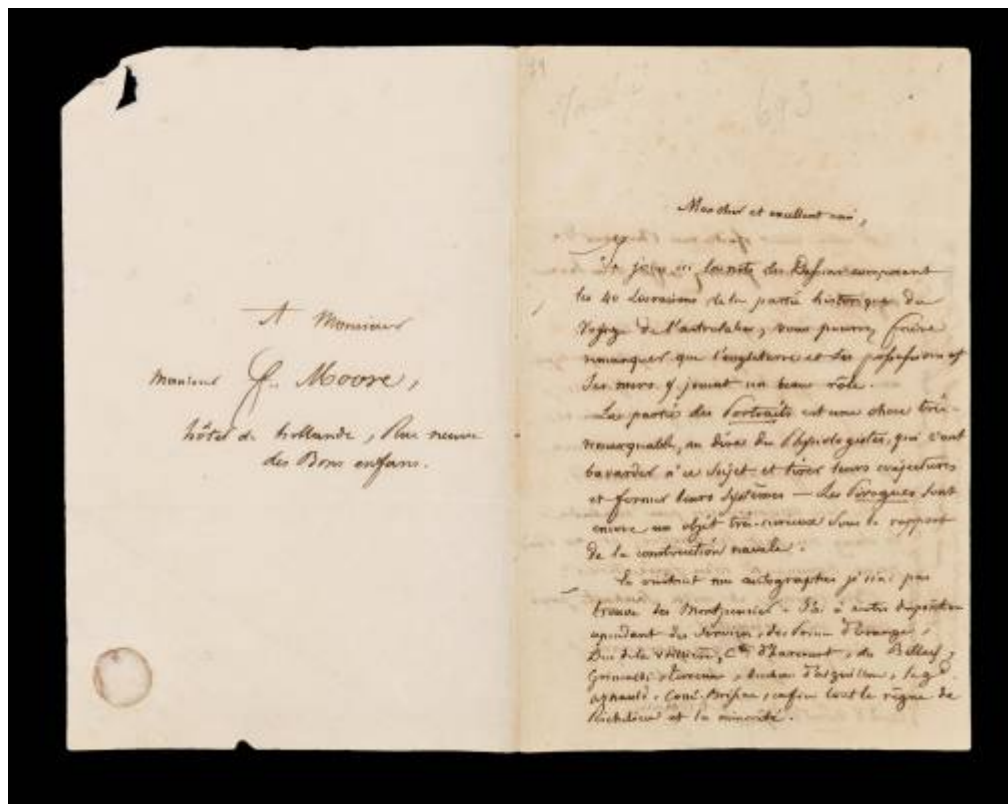 A Monsieur
Monsieur F. Moore,
hôtel de hollande, Rue neuve
des Bons enfans.
693
Mon cher et excellent ami,
Je joins ici la note des Dessins composant
les 40 Livraisons de la partie historique du
Voyage de l'astrolabe, vous pourrez
remarquer que l'angleterre et ses possessions et
ses mers y jouent un beau rôle.
La partie des Portraits est une chose très-
remarquable, au dire des Physiologistes, qui vont
bavarder à ce sujet et tirer leurs conjectures
et former leurs systèmes — Les Pirogues sont
encore un objet très-curieux sous le rapport
de la construction navale.
mes autographes je n'ai pas
trouvé des Montpensier. J'ai à votre disposition
cependant des Servien, des Prince d'Orange,
Duc de la Vrillière, Cte d'harcourt, du Bellay,
Grimaldi, Turenne, duchesse d'aiguillon, le gd
arnauld, Cossé-Brissac, enfin tout le règne de
Richelieu et la minorité.